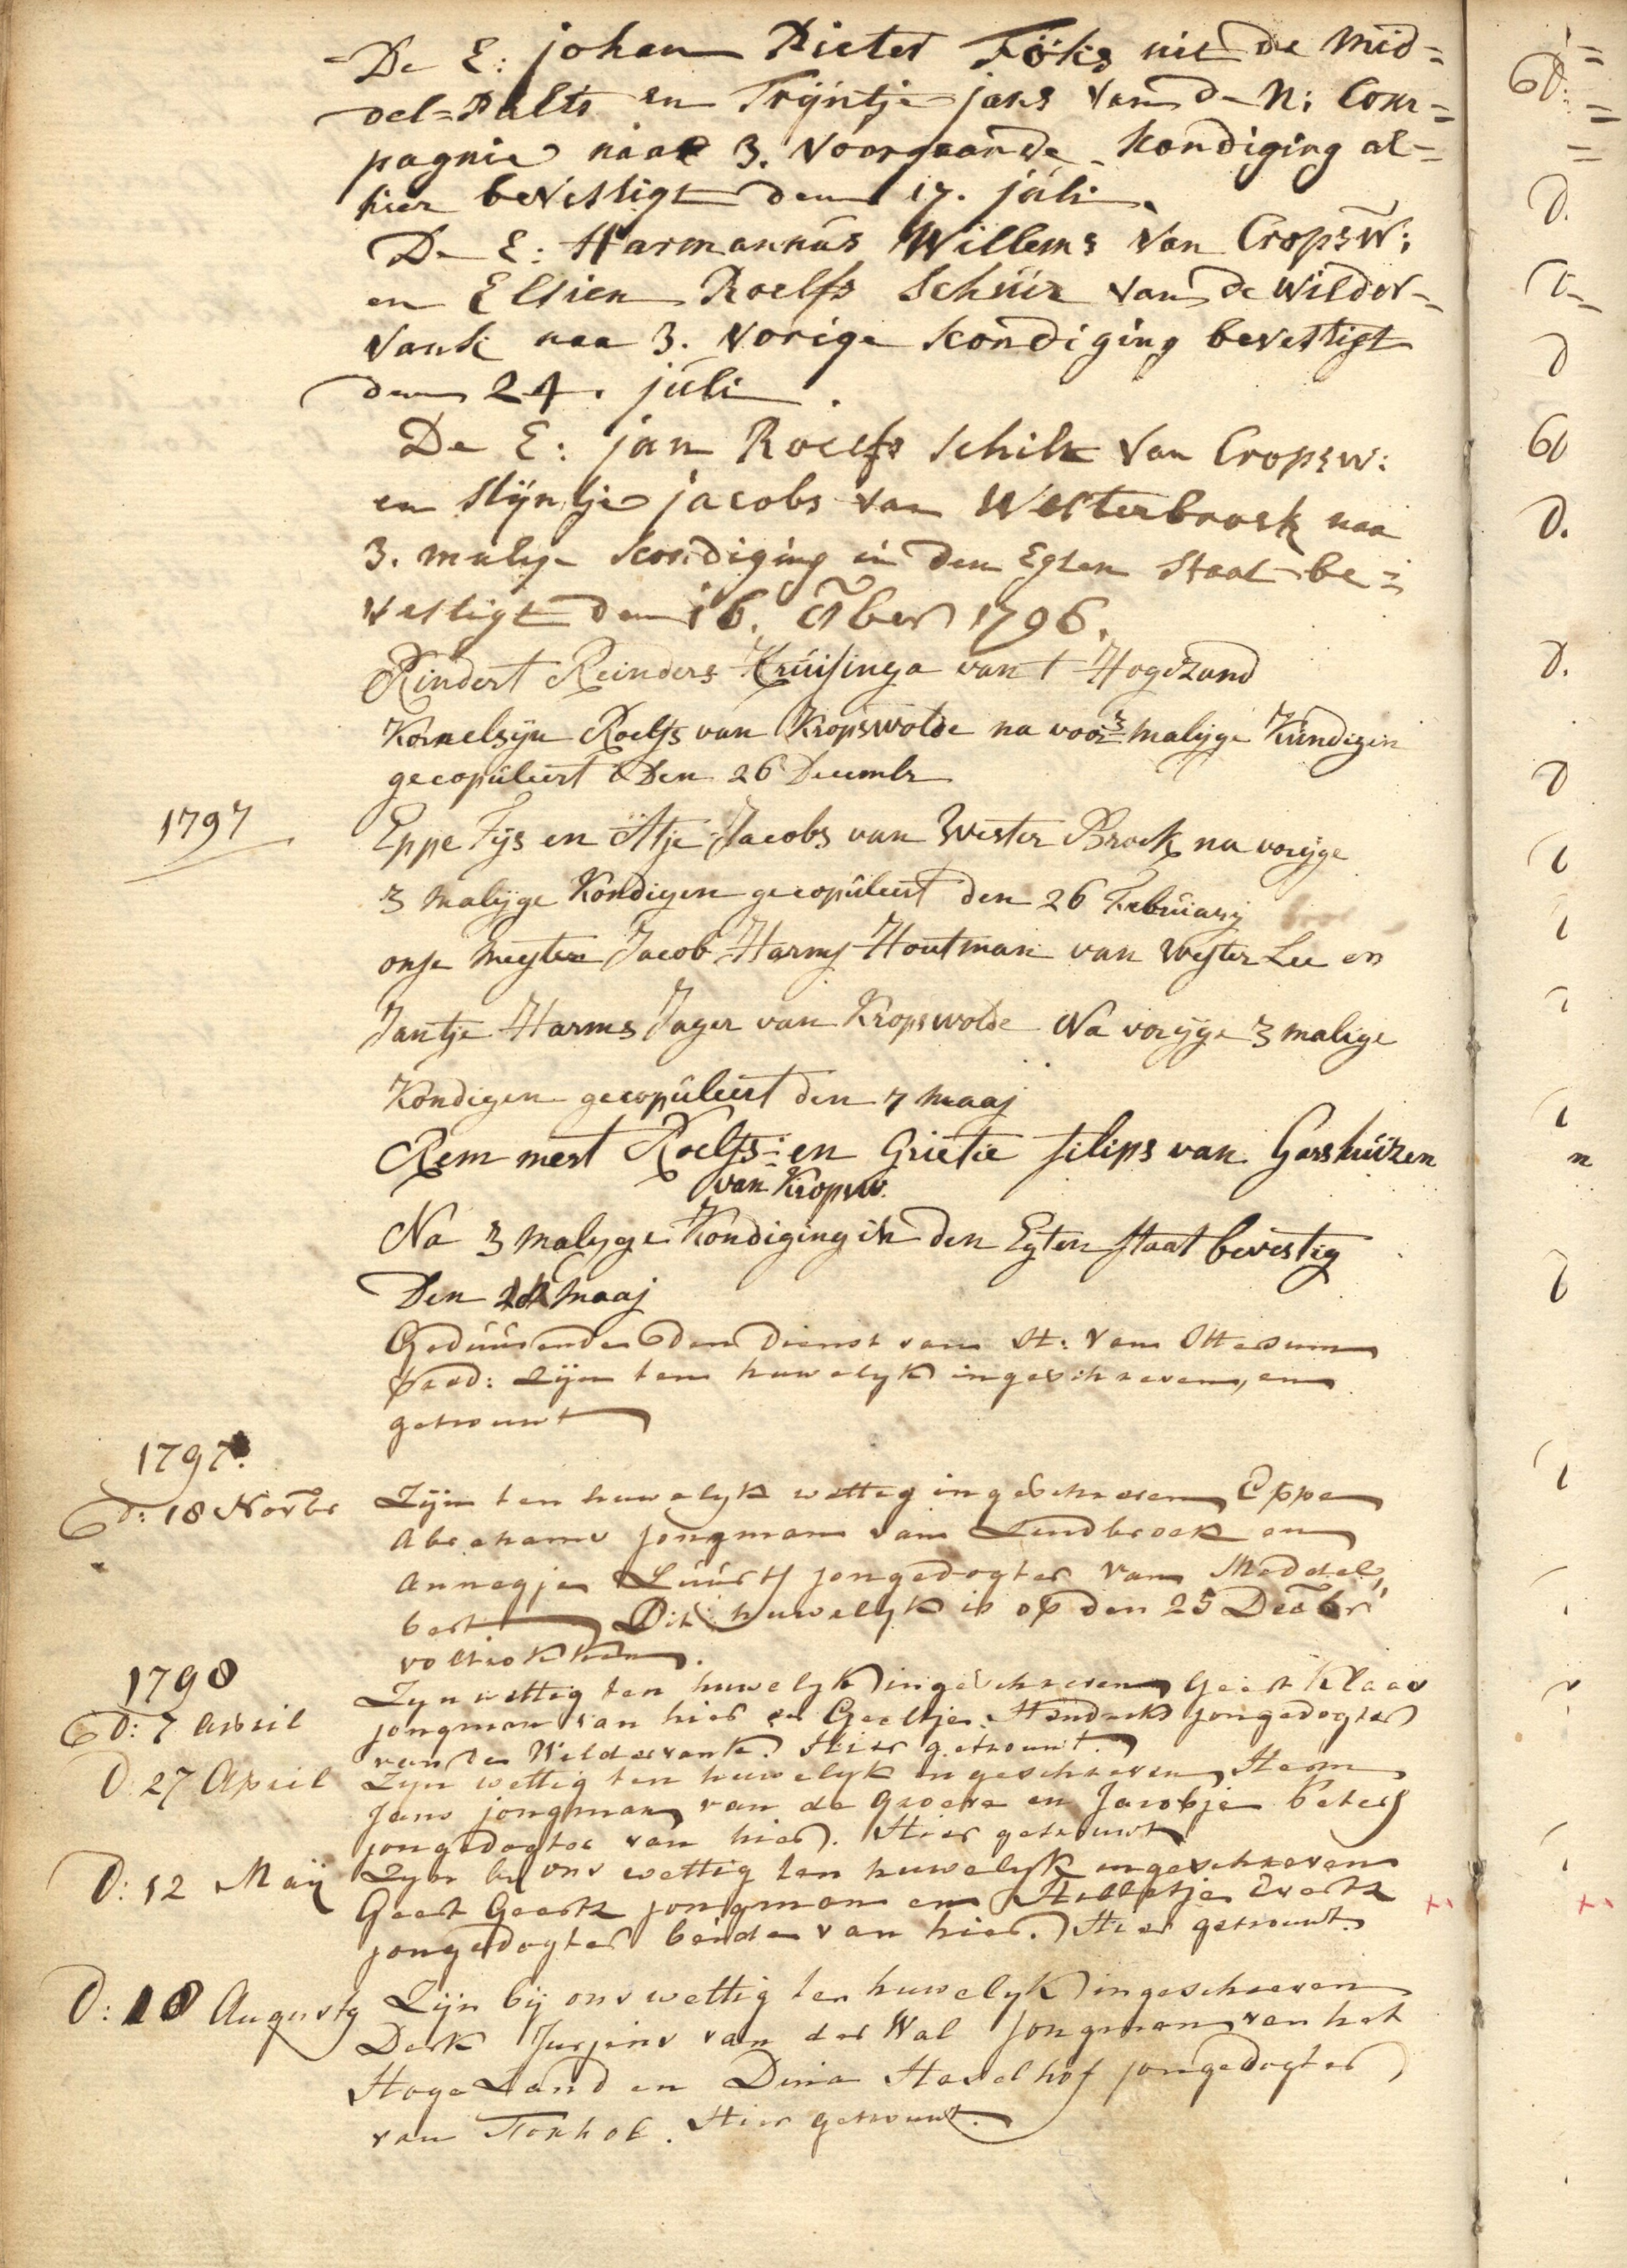 De E: johan Pieter Föks uit de Mid=
del=Palts en Trijntje jans van de N: Com=
pagnie naar 3. voorgaande kondiging al=
hier bevestigt den 17. juli.
De E: Harmannus Willems van Cropsw:
en Elsien Roelfs Schuir van de Wilder=
vank naa 3. vorige kondiging bevestigt
den 24. juli.
De E: jan Roelfs Schilt van Cropsw:
en Stijntje jacobs van Westerbroek naa
3. malige kondiging in den Egten Staat be=
vestigt den 16. 1796.
Rindert Reinders Kruisinga van t Hogezand
Kornelsijn Roelfs van Kropswolde na voor 3 malijge Kundigin
gecopuleert Den 26 Decembr
1797
Eppe Fijs en Atje Jacobs van Wester Broek na vorijge
3 malijge Kondigen gecopuleert den 26 Februarij
onse Meyster Jacob Harms Houtman van Wester Lee en
Jantje Harms Jager van Kropswolde Na vorijge 3 malige
Kondigen gecopuleert den 7 Maaj
Remmert Roelfs en Grietie filips van Garshuizen
van Kropsw.
Na 3 malijge Kondiging in den Egten staat bevestig
Den Maaj
Geduurende den Dienst van H: van Ottersum
Pred: Zijn ten huwelyk ingeschreven, en
getrouwt
1797.
D: 18 Novbr
Zijn ten huwelyk wettig ingeschreven Eppe
Abrahams jongman van Luudbroek en
Annegje Luurts jongedogter van Meddel,
bert Dit huwelyk is op den 25 Decbr
voltrokken.
1798
D: 7 April
Zyn wettig ten huwelyk ingeschreven Geert Klaas
jongman van hier en Geeltje Hendriks jongedogter
van de Wildervank. Hier getrouwt.
D: 27 April
Zyn wettig ten huwelyk ingeschreven Harm
Jans jongman van de Groeve en Jacobje Peters
jongedogter van hier. Hier getrouwt
D: 12 Maij
Zyn bij ons wettig ten huwelyk ingeschreven
Geert Geerts jongman en Hilletje Everts
jongedogter beide van hier. Hier getrouwt.
D: 18 Augusty
Zijn bij ons wettig ten huwelyk ingeschreven
Derk Jurjens van der Wal jongman van het
Hoge Zand en Dina Haselhof jongedogter
van Foxhol. Hier getrouwt.